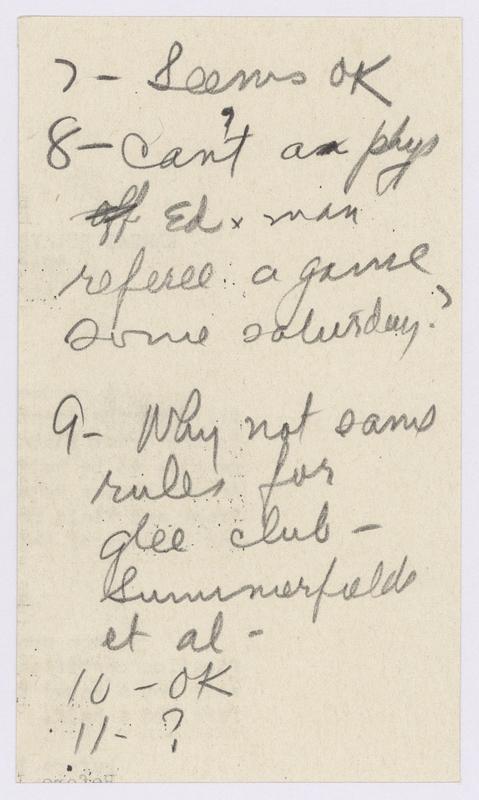 7 - Seems OK
?
8 - Can't a phys
Ed x man
referee a game
some saturday?
9 - Why not same
rules for
glee club -
Summerfields
et al -
10 - OK
11 - ?